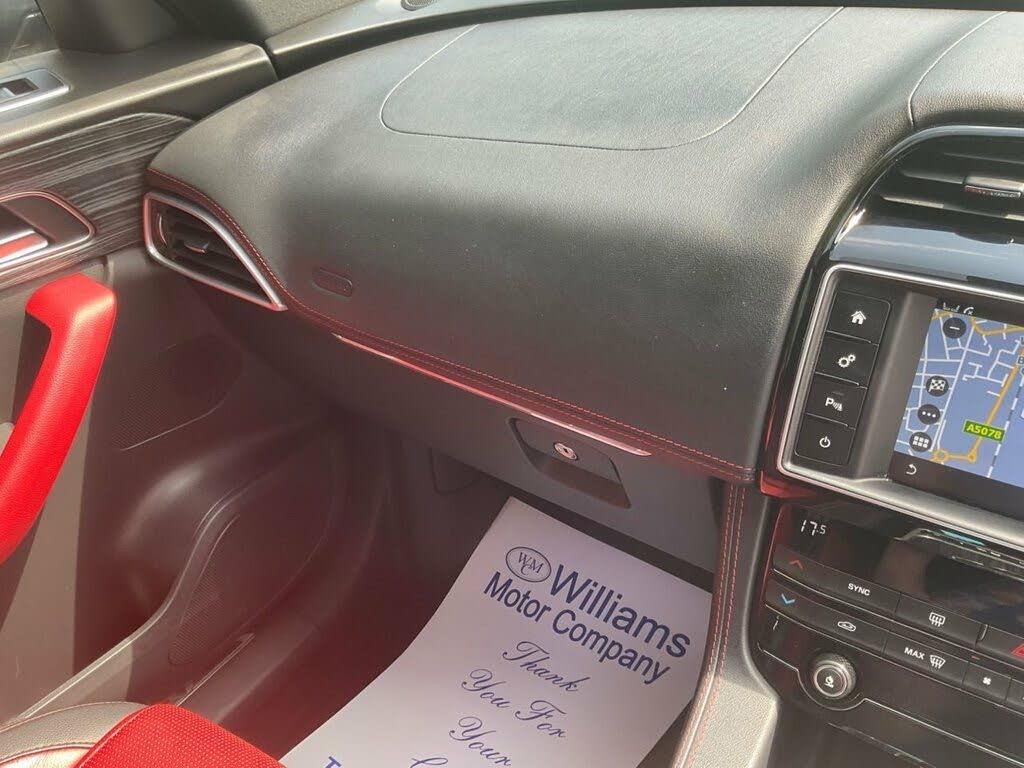 A5078
17.5
SYNC
MAX
WM
Williams
Motor Company
Thank
You For
Your